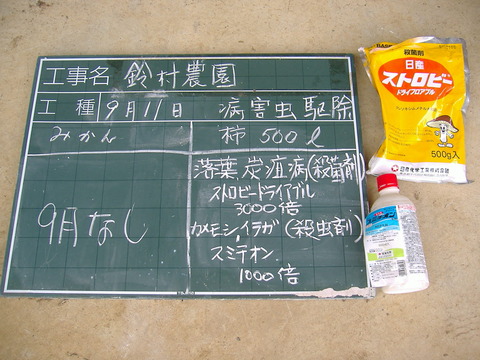 工事名 鈴村農園
工種 9月11日 病害虫駆除
みかん 柿 500ℓ
9月なし
落葉炭疽病(殺菌剤)
ストロビードライアブル
3000倍
カメモシ,イラガ(殺虫剤)
スミチオン
1000倍
殺菌剤
日産
ストロビー
ドライフロアブル
500g入
日産化学工業株式会社